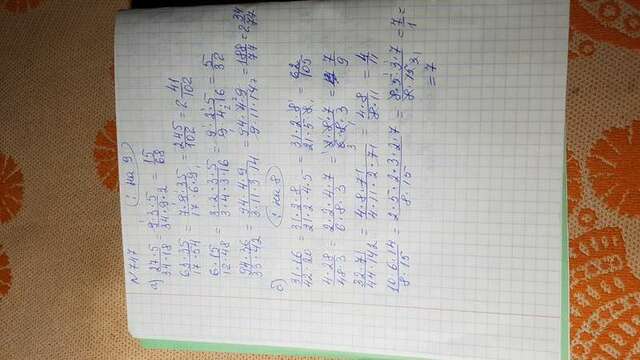 №747 (: на 9)
а) 27·5/34·18 = 9·3·5/34·9·2 = 15/68
63·35/17·54 = 7·9·35/17·6·9 = 245/102 = 2 41/102
6·15/12·48 = 3·2·3·5/3·4·3·16 = 9·2·5/9·4·16 = 5/32
94·36/33·42 = 94·4·9/3·11·3·14 = 94·4·9/9·11·14 = 188/77 = 2 34/77
б) (: на 8)
31·16/42·20 = 31·2·8/21·2·4·5 = 31·2·8/21·5·8 = 62/105
4·28/48·3 = 2·2·4·7/6·8·3 = 2·8·7/6·8·3 = 7/9
32·71/44·142 = 4·8·71/4·11·2·71 = 4·8/8·11 = 4/11
10·6·14/8·15 = 2·5·2·3·2·7/8·15 = 8·5·3·7/8·15 = 7/1 =
= 7